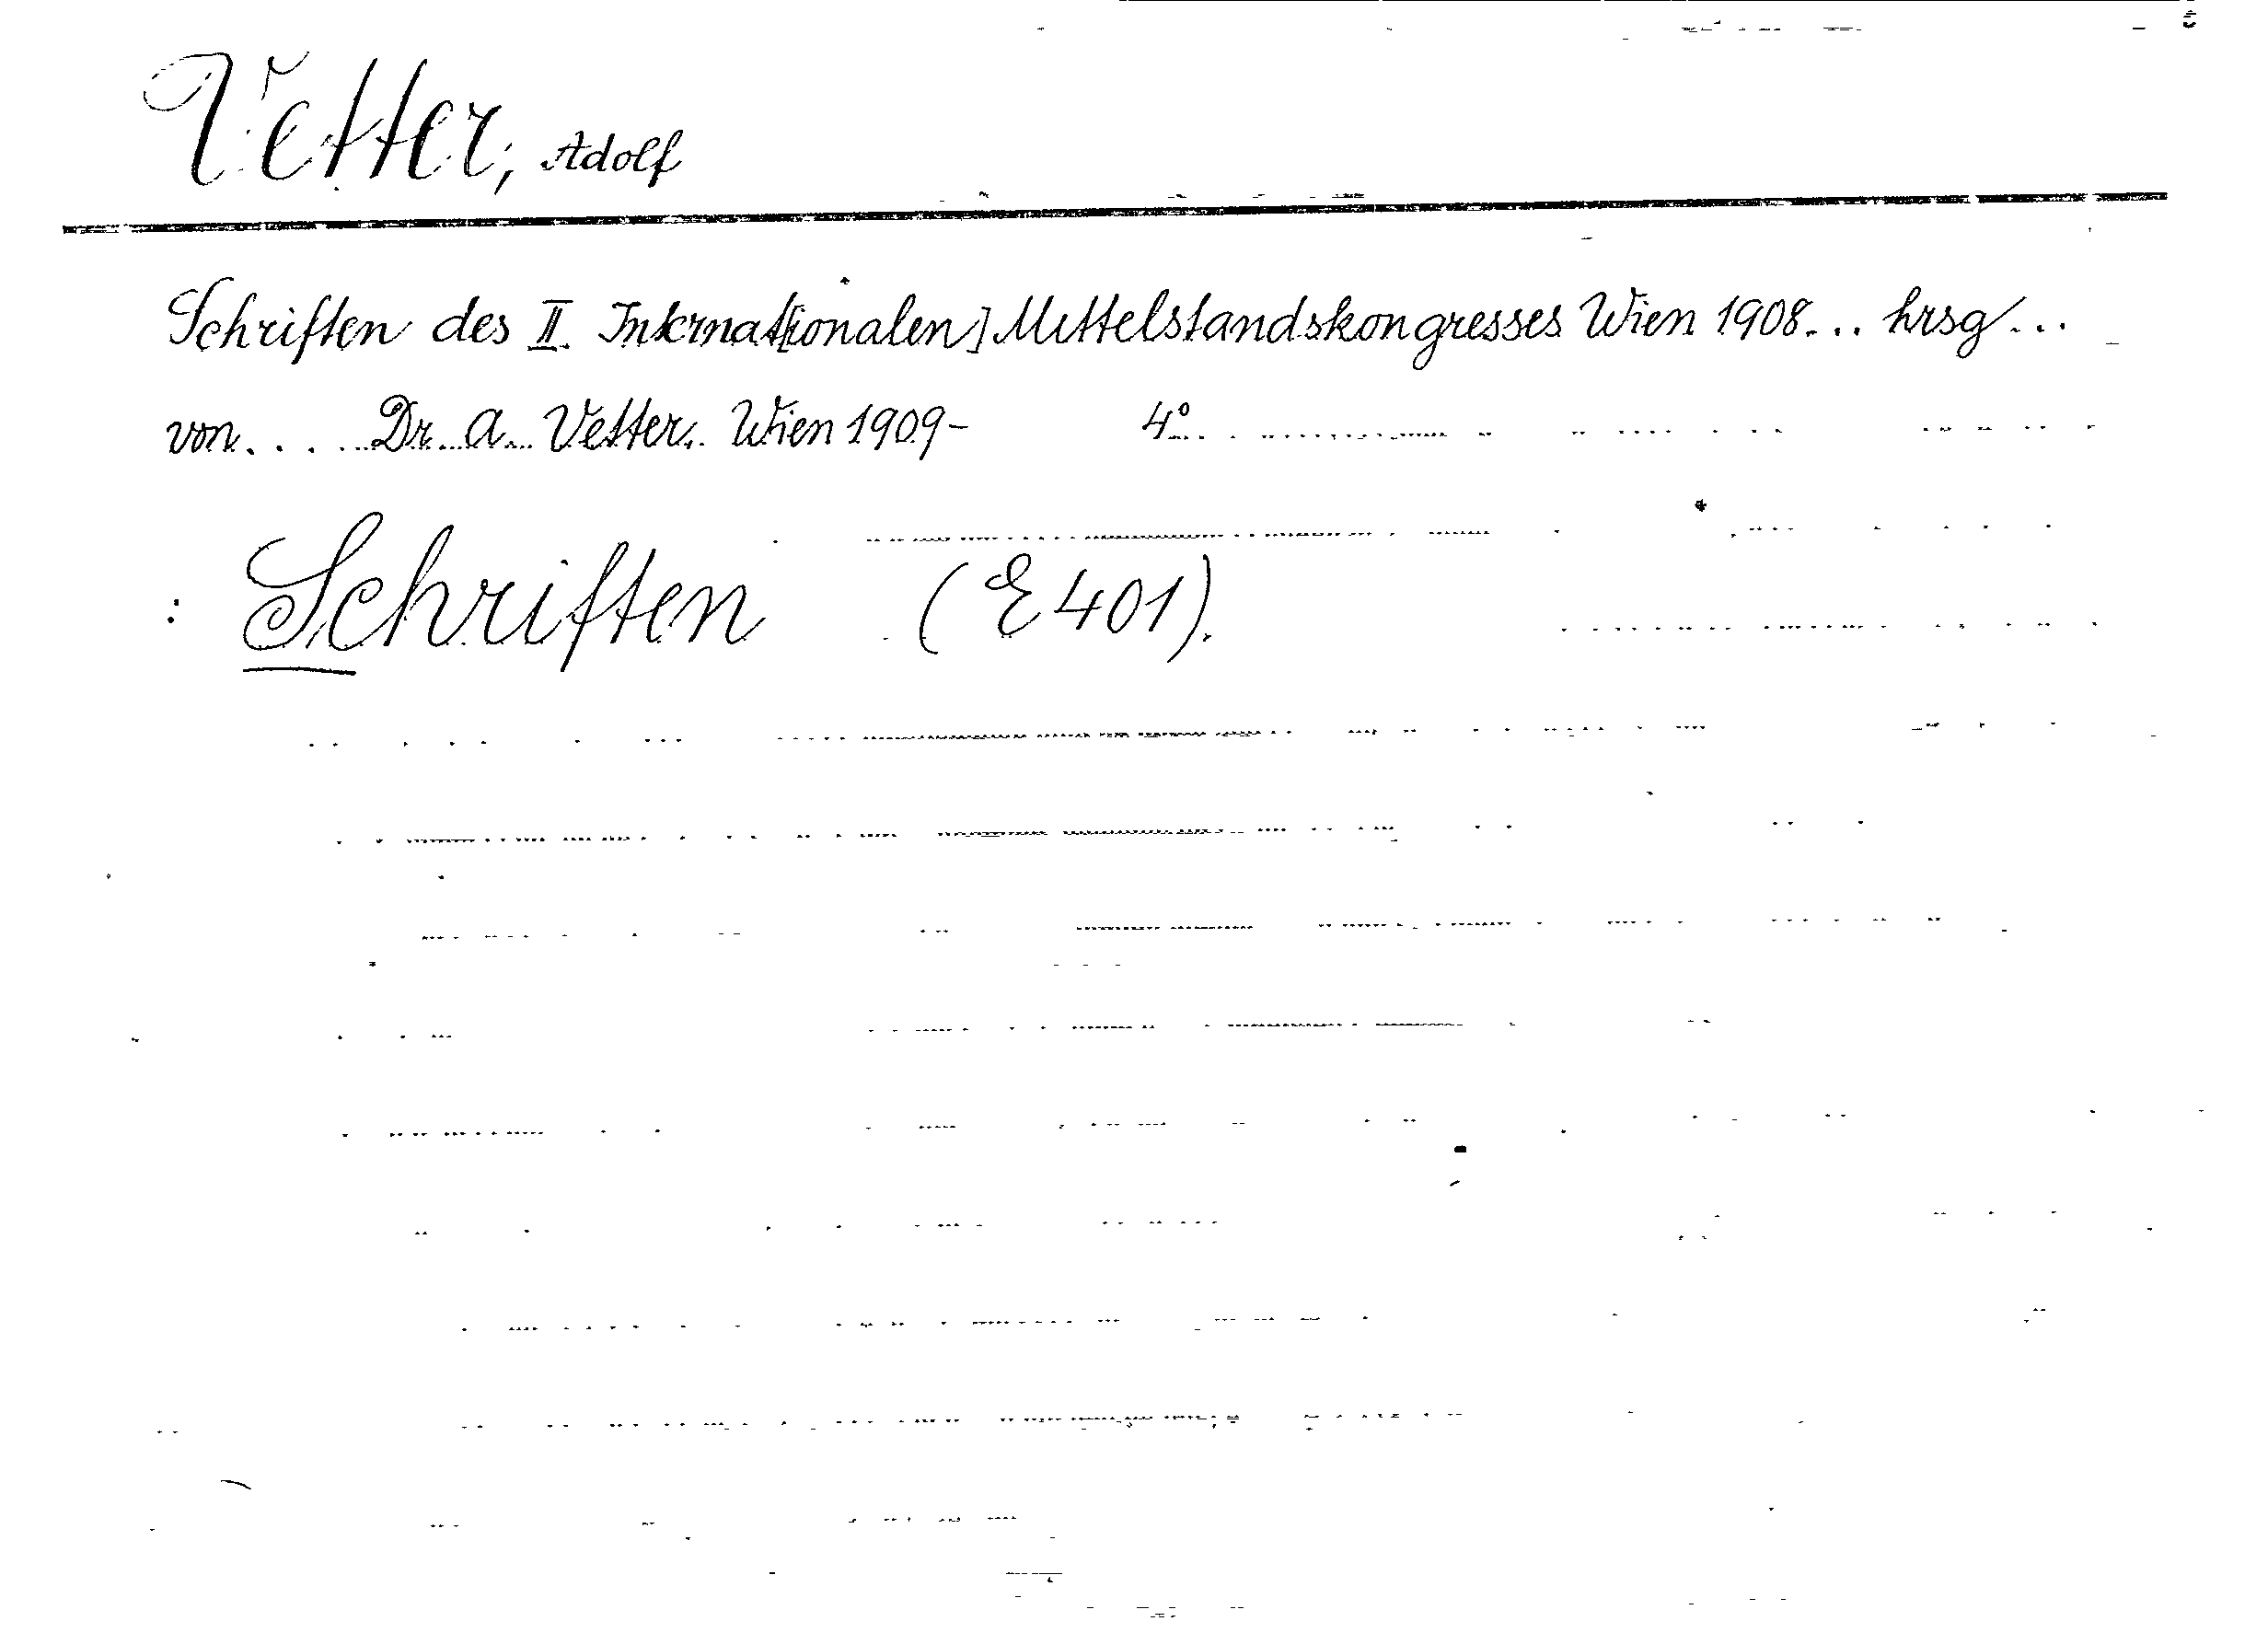 Vetter, Adolf
Schriften des II. Internat[ionalen] Mittelstandskongresses Wien 1908... hrsg...
von..... Dr. A. Vetter. Wien 1909- 4°
: Schriften (E 401).